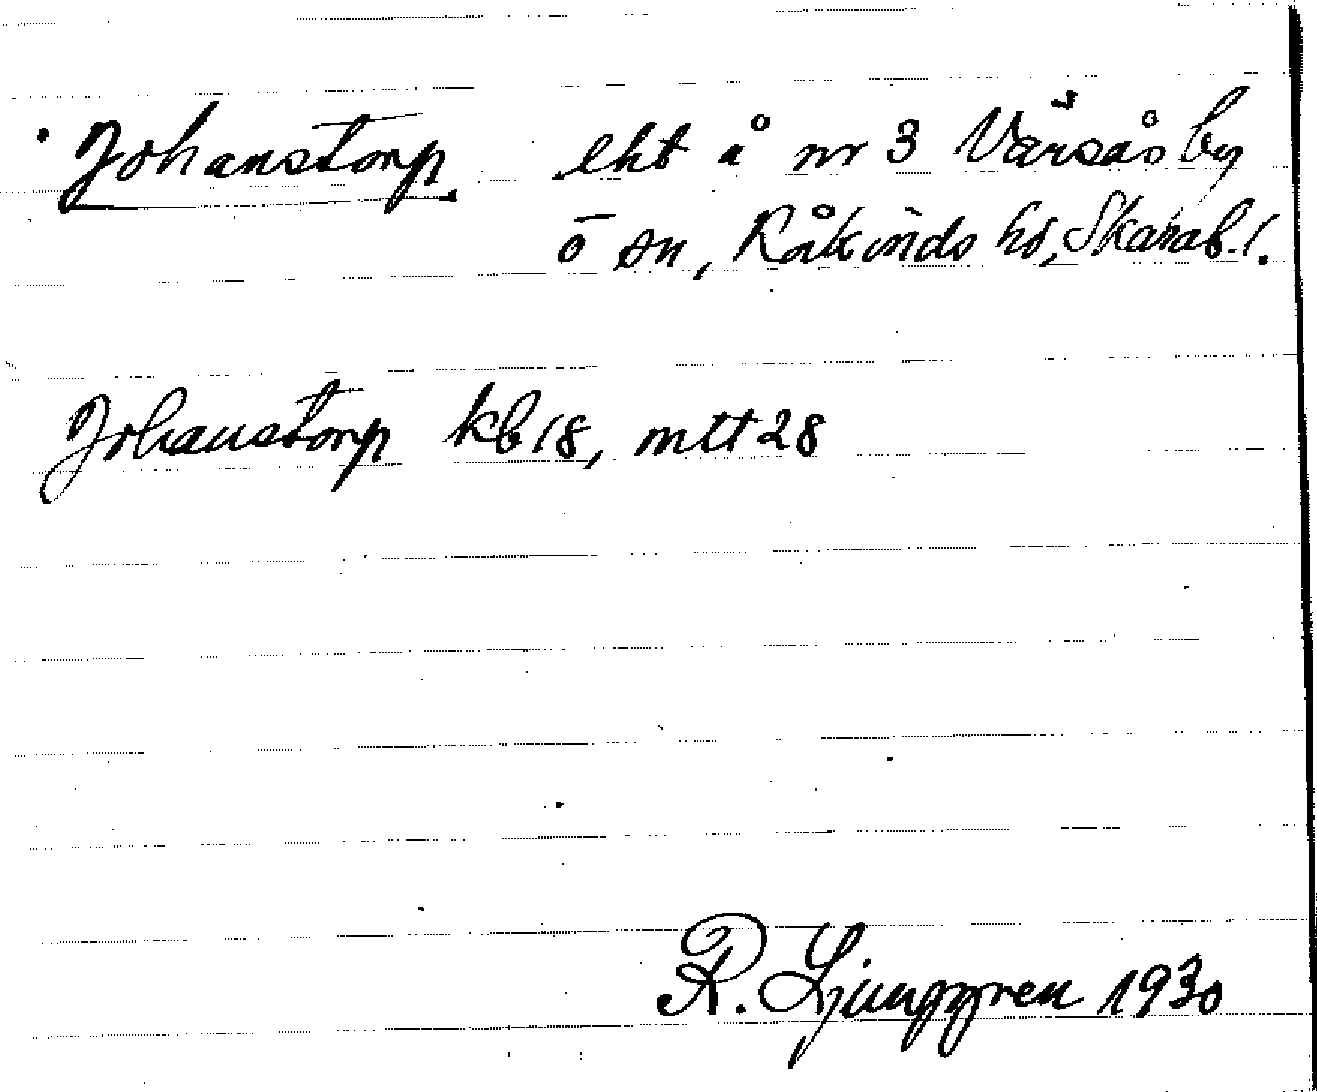 Johanstorp lht å nr 3 Värsås by
o sn, Kåkinds hd, Skarab. l.
Johanstorp kb 18, mtt 28
R. Ljunggren 1930